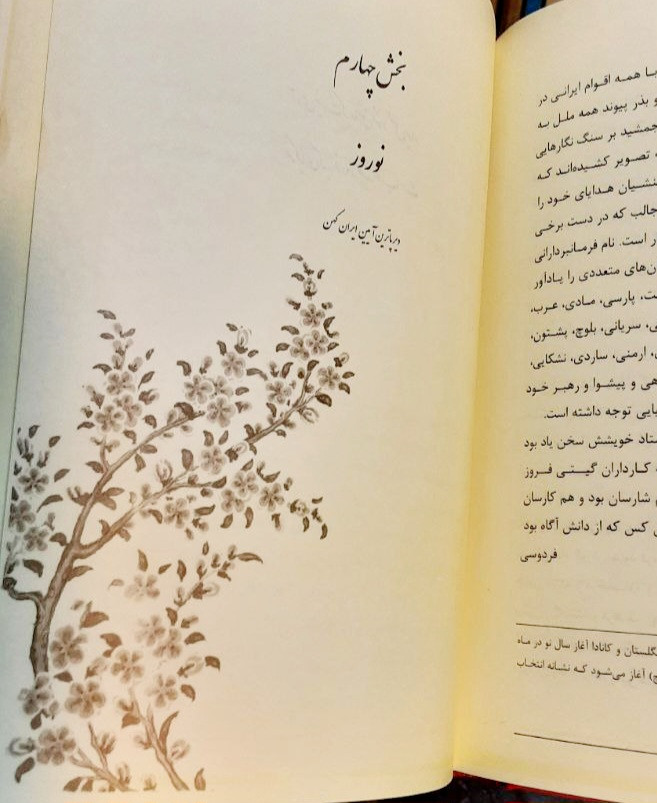 بخش چهارم
نوروز
دیرپاترین آیین ایران کهن
با همه اقوام ایرانی در
و بذر پیوند همه ملل به
جمشید بر سنگ نگارهایی
تصویر کشیده‌اند که
هدایای خود را
جالب که در دست برخی
است. نام فرمانبردارانی
متعددی را یادآور
پارسی، مادی، عرب،
سریانی، بلوچ، پشتون،
ارمنی، ساردی، نشکایی،
و پیشوا و رهبر خود
توجه داشته است.
خویشش سخن یاد بود
کارداران گیتی فروز
شارسان بود و هم کارسان
کس که از دانش آگاه بود
فردوسی
و کانادا آغاز سال نو در ماه
آغاز می‌شود که نشانه انتخاب